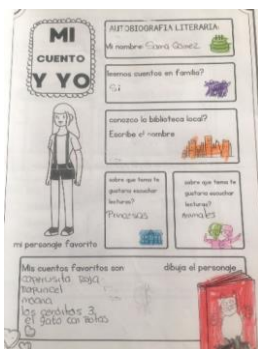 MI
CUENTO
Y YO
AUTOBIOGRAFIA LITERARIA:
Mi nombre Sara Gómez
leemos cuentos en familia?
Si
conozco la biblioteca local?
Escribe el nombre
sobre que tema te
gustaria escuchar
lecturas?
Princesas
sobre que tema te
gustaria escuchar
lecturas?
Animales
mi personaje favorito
Mis cuentos favoritos son
dibuja el personaje
caperusita Roja
Rapuncel
moana
los cerditos 3,
el gato con botas